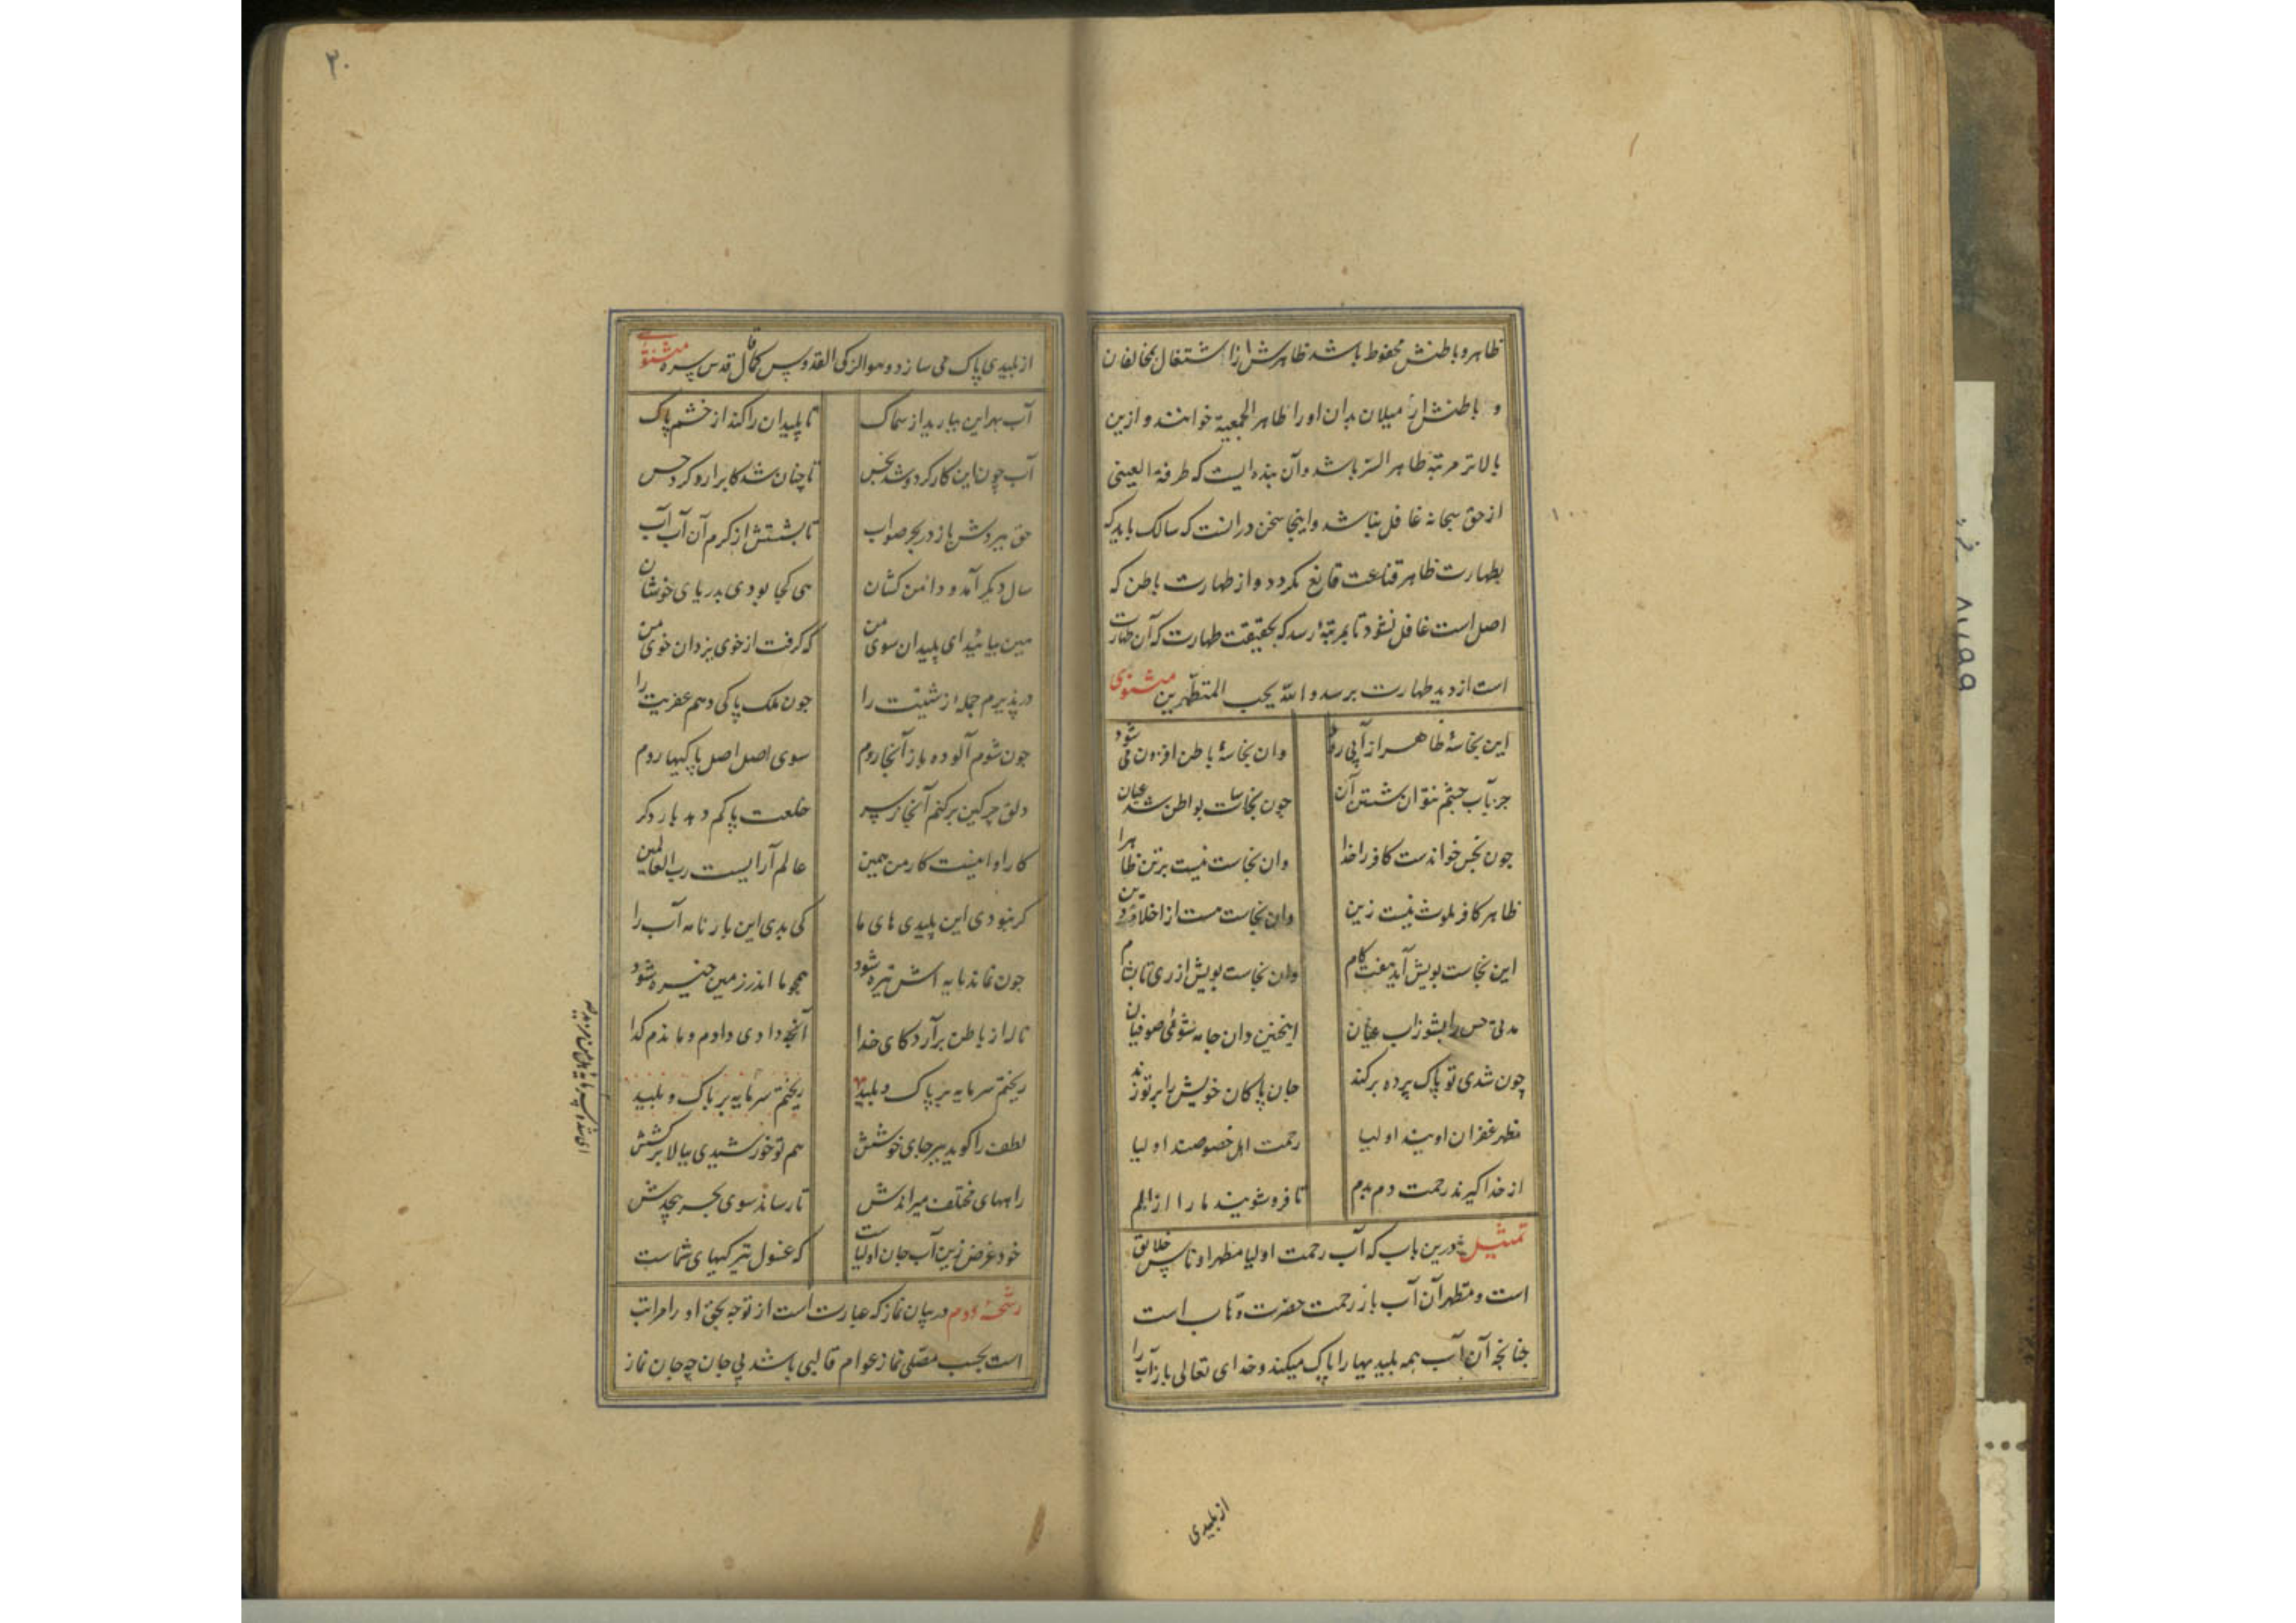 ظاهر و باطنش محفوظ باشد ظاهرش از اشتغال بمخالفان
و باطنش از میلان بدان او را ظاهر الجمعیة خوانند و ازین
بالاتر مرتبهٔ طاهر السّر باشد و آن بنده ایست که طرفة العینی
از حق سبحانه غافل نباشد و اینجا سخن درانست که سالک باید که
بطهارت ظاهر قناعت قانع نکردد و از طهارت باطن که
اصل است غافل نشود تا بمرتبهٔ رسد که بحقیقت طهارت که آن طهارت
است از دید طهارت برسد و الله یحب المتطهّرین مثنوی
این نجاسهٔ ظاهر از آبی رود وان نجاسهٔ باطن افزون می شود
جز بآب چشم نتوان شستن آن چون نجاسات بواطن شد عیان
چون نجس خواندست کافر را خدا وان نجاست نیست بر تن ظاهرا
ظاهر کافر ملوث نیست زین وان نجاست هست از اخلاق و دین
این نجاست بویش آید هفت کام وان نجاست بویش از ری تا بشام
حس را بشو ز آب عیان اینچنین دان جامه شوئی صوفیان
چون شدی تو پاک پرده برکند جان پاکان خویش را بر تو زند
مظهر غفران اویند اولیا رحمت اهل خصوصند اولیا
از خدا کیرند رحمت دم بدم تا فروشویند ما را از الم
تمثیل درین باب که آب رحمت اولیا مطهر اوناس خلایق
است و مطهر آن آب باز رحمت حضرت وهاب است
چنانچه آن آب همه بلیدیها را پاک میکند و خدای تعالی باز آب را
از بلیدی
۲۰
از بلیدی پاک می سازد و هو الزکی القدوس کما قال قدس سره مثنوی
آب بهر این ببارید از سماک تا پلیدان را کند از خشم پاک
آب چون این کار کرد و شد نجس تا چنان شد کاب را رد کرد حس
حق ببردش باز در بحر صواب تا بشستش از کرم آن آب آب
سال دیکر آمد و دامن کشان هی کجا بودی بدریای خوشان
هین بیائید ای پلیدان سوی من که کرفت از خوی یزدان خوی من
درپذیرم جمله از شتیت را چون ملک پاکی دهم عفریت را
چون شوم آلوده باز آنجا روم سوی اصل اصل پاکیها روم
دلق چرکین برکنم آنجا ز سر خلعت پاکم دهد بار دکر
کار او اینست کار من همین عالم آرایست رب العالمین
کر نبودی این پلیدی های ما کی بدی این بارنامه آب را
چون نماند مایه اش تیره شود همچو ما اندر زمین خیره شود
ناله از باطن برآرد کای خدا آنچه دادی دادم و ماندم کدا
ریختم سرمایه بر پاک و بلید ریختم سرمایه بر باک و بلید
لطف را کوید ببر جای خوشش هم تو خورشیدی ببالا برکشش
راههای مختلف میراندش تا رساند سوی بحر بیحدش
خود غرض زین آب جان اولیاست که غسول تیرکیهای شماست
رشحهٔ دوم در بیان نماز که عبارت است از توجه بحق او را مراتب
است بحسب مصلّی نماز عوام قالبی باشد بی جان چه جان نماز